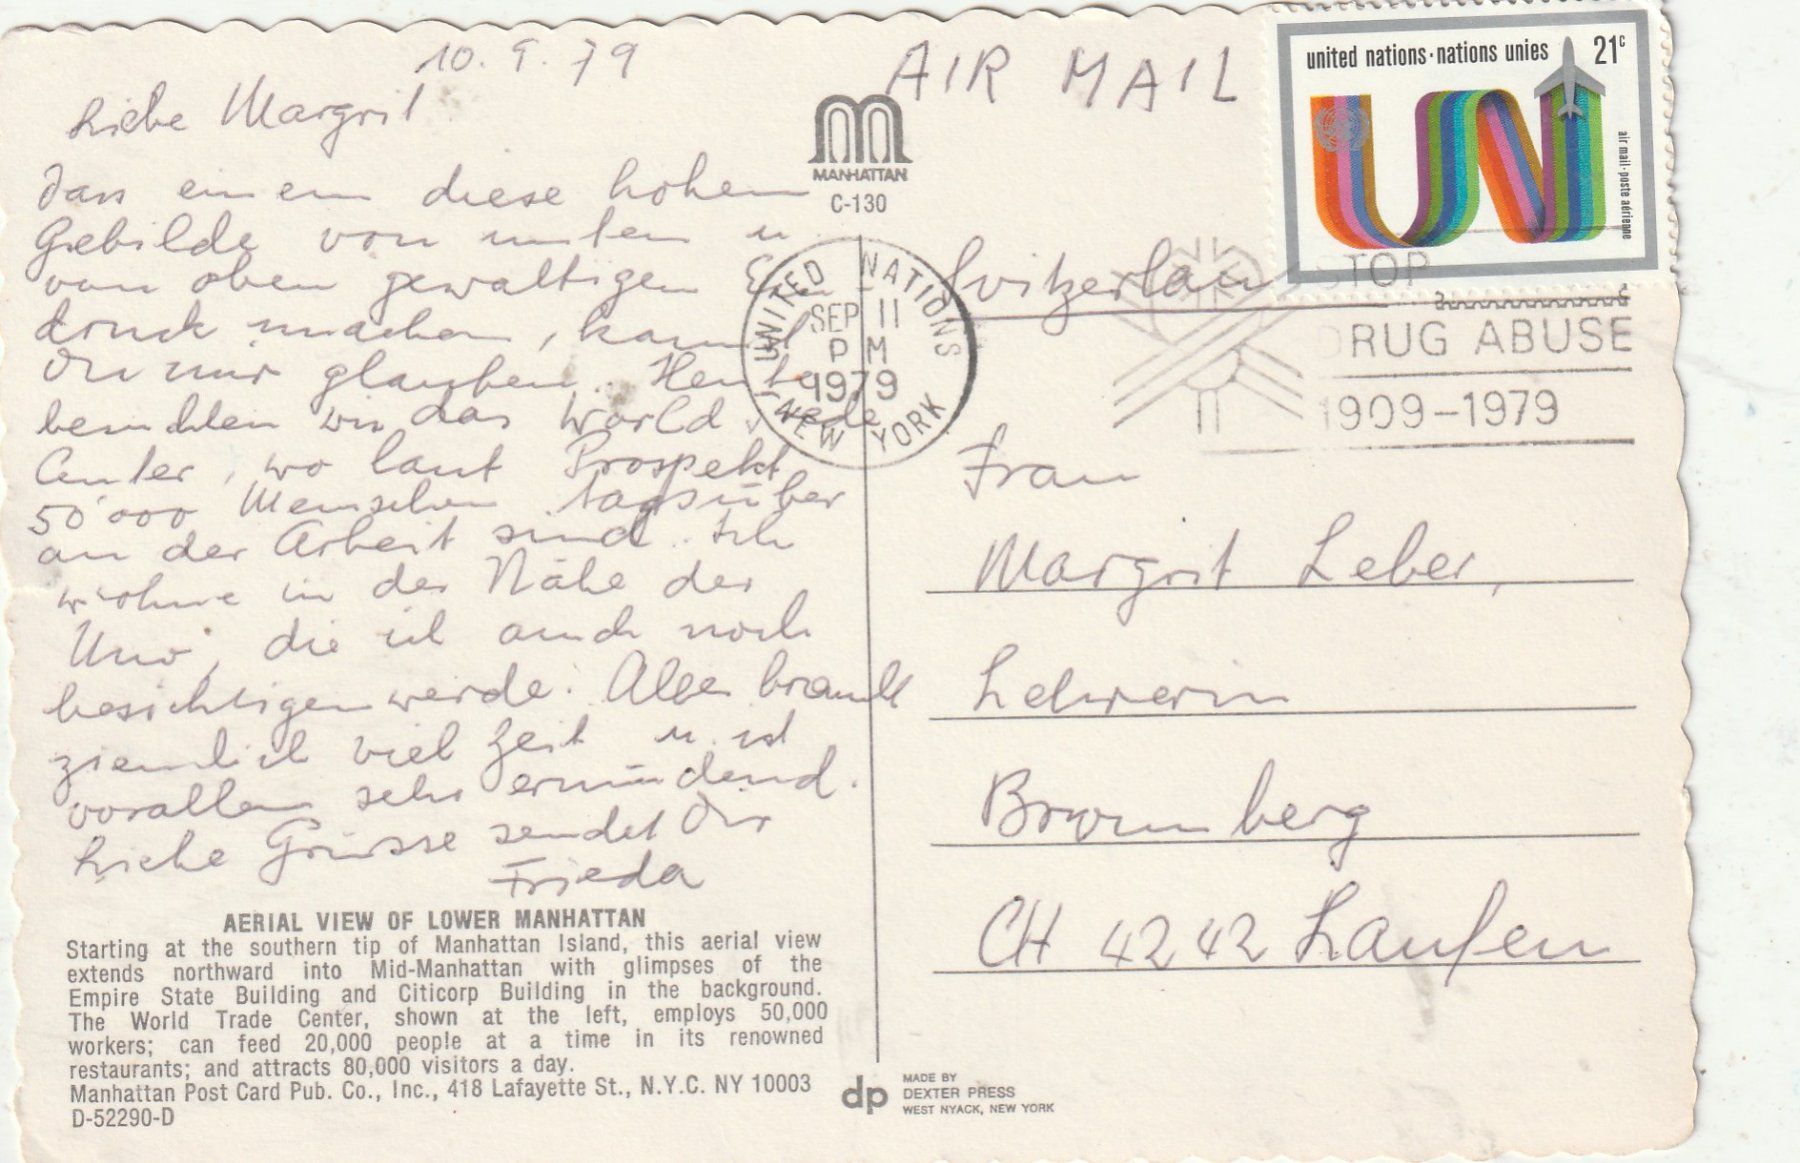 10. 9. 79
AIR MAIL
Liebe Margrit
Dass einem diese hohen
Gebilde von unten u.
von oben gewaltigen Ein-
druck machen, kannst
Du mir glauben. Heute
besuchten wir das World Trade
Center, wo laut Prospekt
50'000 Menschen tagsüber
an der Arbeit sind. Ich
wohne in der Nähe der
Uno, die ich auch noch
besichtigen werde. Alles braucht
ziemlich viel Zeit u. ist
vorallem sehr ermüdend.
Liebe Grüsse sendet Dir
Frieda
AERIAL VIEW OF LOWER MANHATTAN
Starting at the southern tip of Manhattan Island, this aerial view
extends northward into Mid-Manhattan with glimpses of the
Empire State Building and Citicorp Building in the background.
The World Trade Center, shown at the left, employs 50,000
workers; can feed 20,000 people at a time in its renowned
restaurants; and attracts 80,000 visitors a day.
Manhattan Post Card Pub. Co., Inc., 418 Lafayette St., N.Y.C. NY 10003
D-52290-D
MANHATTAN
C-130
united nations·nations unies 21c
UN
air mail·poste aérienne
UNITED NATIONS
SEP 11
PM
1979
NEW YORK
STOP
DRUG ABUSE
1909-1979
Frau
Margrit Leber,
Lehrerin
CH 4242 Laufen
dp
MADE BY
DEXTER PRESS
WEST NYACK, NEW YORK